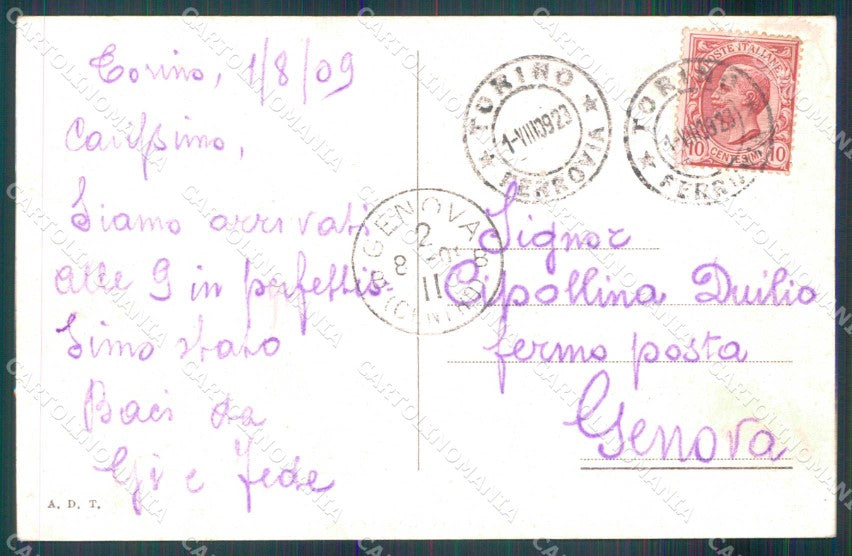 Torino, 1/8/09
Carissimo,
Siamo arrivati
alle 9 in perfettis-
simo stato
Baci da
Gi e Fede
A. D. T.
TORINO
1-VIII 09 23
FERROVIA
TORINO
FERR
POSTE ITALIANE
10 CENTESIMI 10
GENOVA
8
(CENTRO)
Signor
Cipollina Duilio
fermo posta
Genova
CARTOLINOMANIA